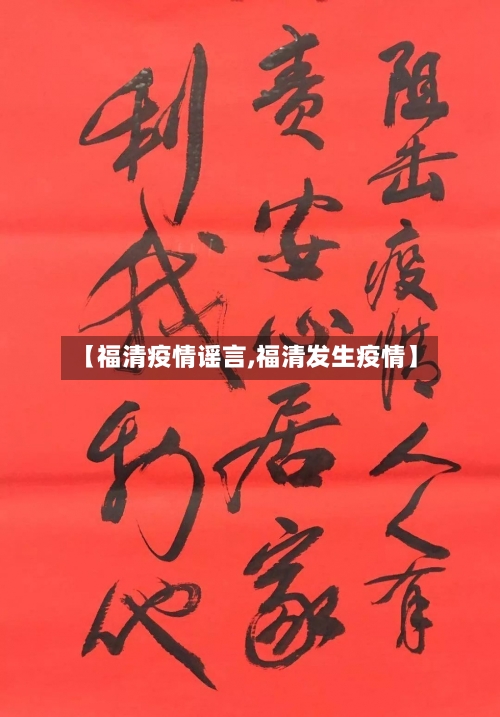 阻击疫情人人有
责安心居家
利我利他
【福清疫情谣言,福清发生疫情】